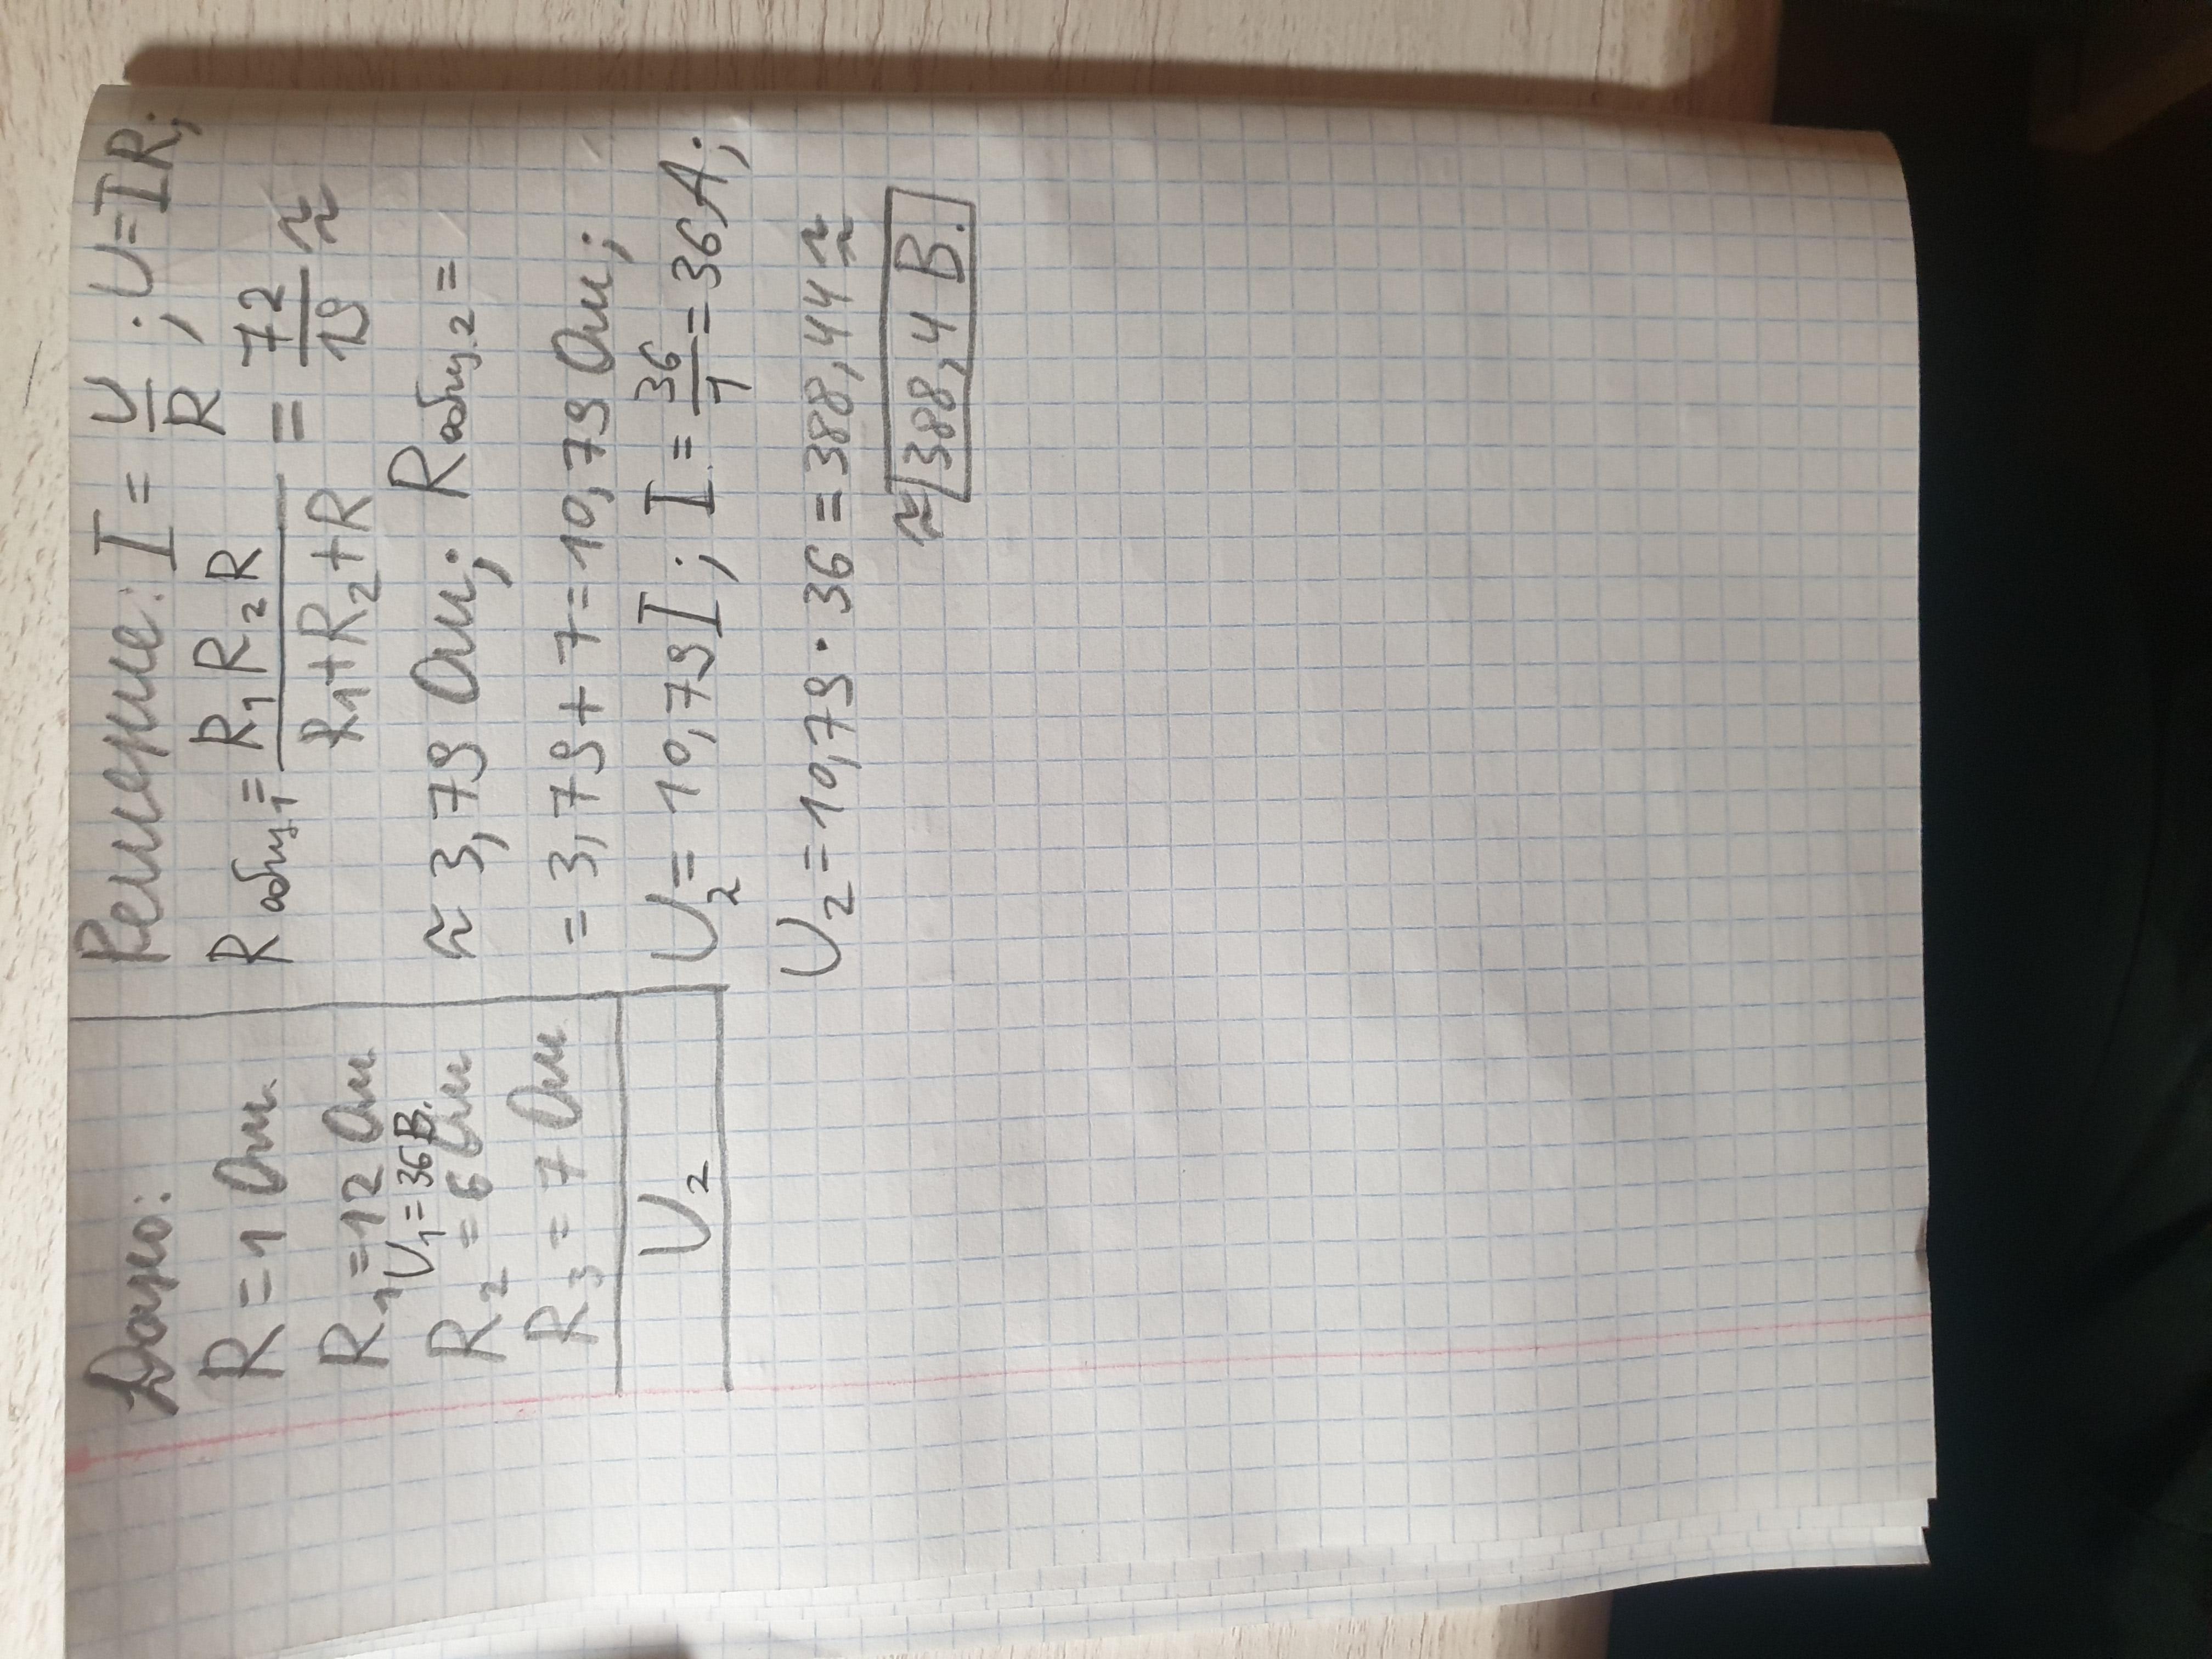 Дано:
R = 1 Ом
R₁ = 12 Ом
U₁ = 36 В.
R₂ = 6 Ом
R₃ = 7 Ом
U₂
Решение: I = U/R; U = IR;
Rобщ.1 = R₁R₂R/R₁+R₂+R = 72/19 ≈
≈ 3,79 Ом; Rобщ.2 =
= 3,79 + 7 = 10,79 Ом;
U₂ = 10,79 I; I = 36/1 = 36 А;
U₂ = 10,79 · 36 = 388,44 ≈
≈ 388,4 В.